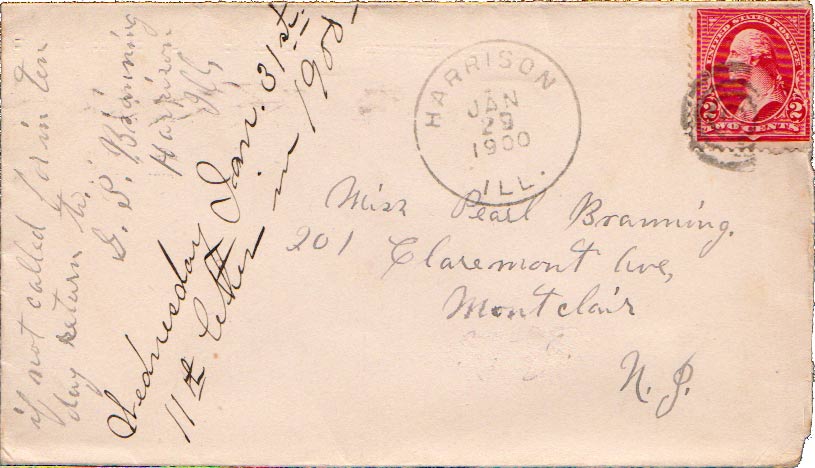 if not called for in ten
day return to.
S. S. Branning
Harrison
Ills
Wednesday Jan. 31st.
11th letter in 1900-
HARRISON
JAN
29
1900
ILL.
UNITED STATES POSTAGE
2 2
TWO CENTS
Miss Pearl Branning.
201 Claremont Ave,
Montclair
N. J.